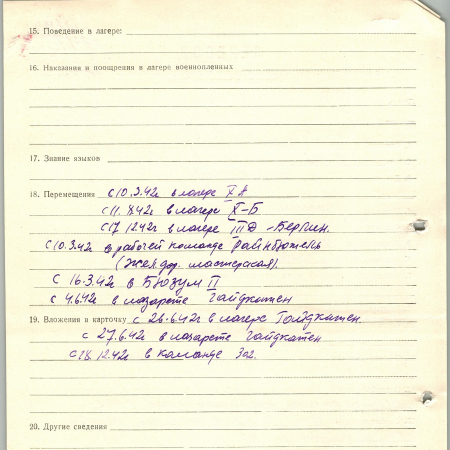 15. Поведение в лагере:
16. Наказания и поощрения в лагере военнопленных
17. Знание языков
18. Перемещения с 10.3.42г в лагере X А
с 11.8.42г в лагере X-Б
с 17.12.42г в лагере III Д - Берлин.
с 10.3.42г в рабочей команде
(жел.дор. мастерская).
с 16.3.42г в Бюзум II
с 4.6.42г в лазарете Гайдкатен
19. Вложения в карточку с 26.6.42г в лагере Гайдкатен.
с 27.6.42г в лазарете Гайдкатен
с 28.12.42г в команде
20. Другие сведения